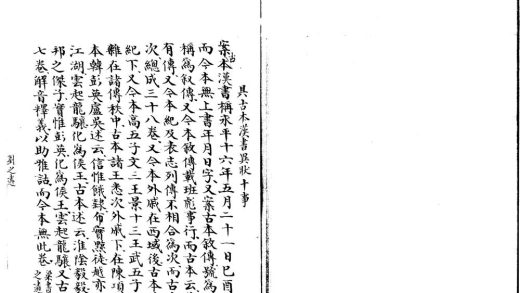 具古本漢書異狀十事
案古本漢書稱永平十六年五月二十一日己酉
而今本無上書年月日字又案古本敘傳號爲
稱爲敘傳又今本敘傳載班彪事行而古本云
有傳又今本紀及表志列傳不相合爲次而古
次總成三十八卷又今本外戚在西域後古本
紀下又今本高五子文三王景十三王武五子
雜在諸傳秩中古本諸王悉次外戚下在陳項
本韓彭英盧吳述云信惟餓隸布實黥徒越亦
江湖雲起龍驤化爲侯王古本述云淮陰毅毅
邦之傑子實惟彭英化爲侯王雲起龍驤又古
七卷解音釋義以助雅詁而今本無此卷梁書之遴
劉之遴